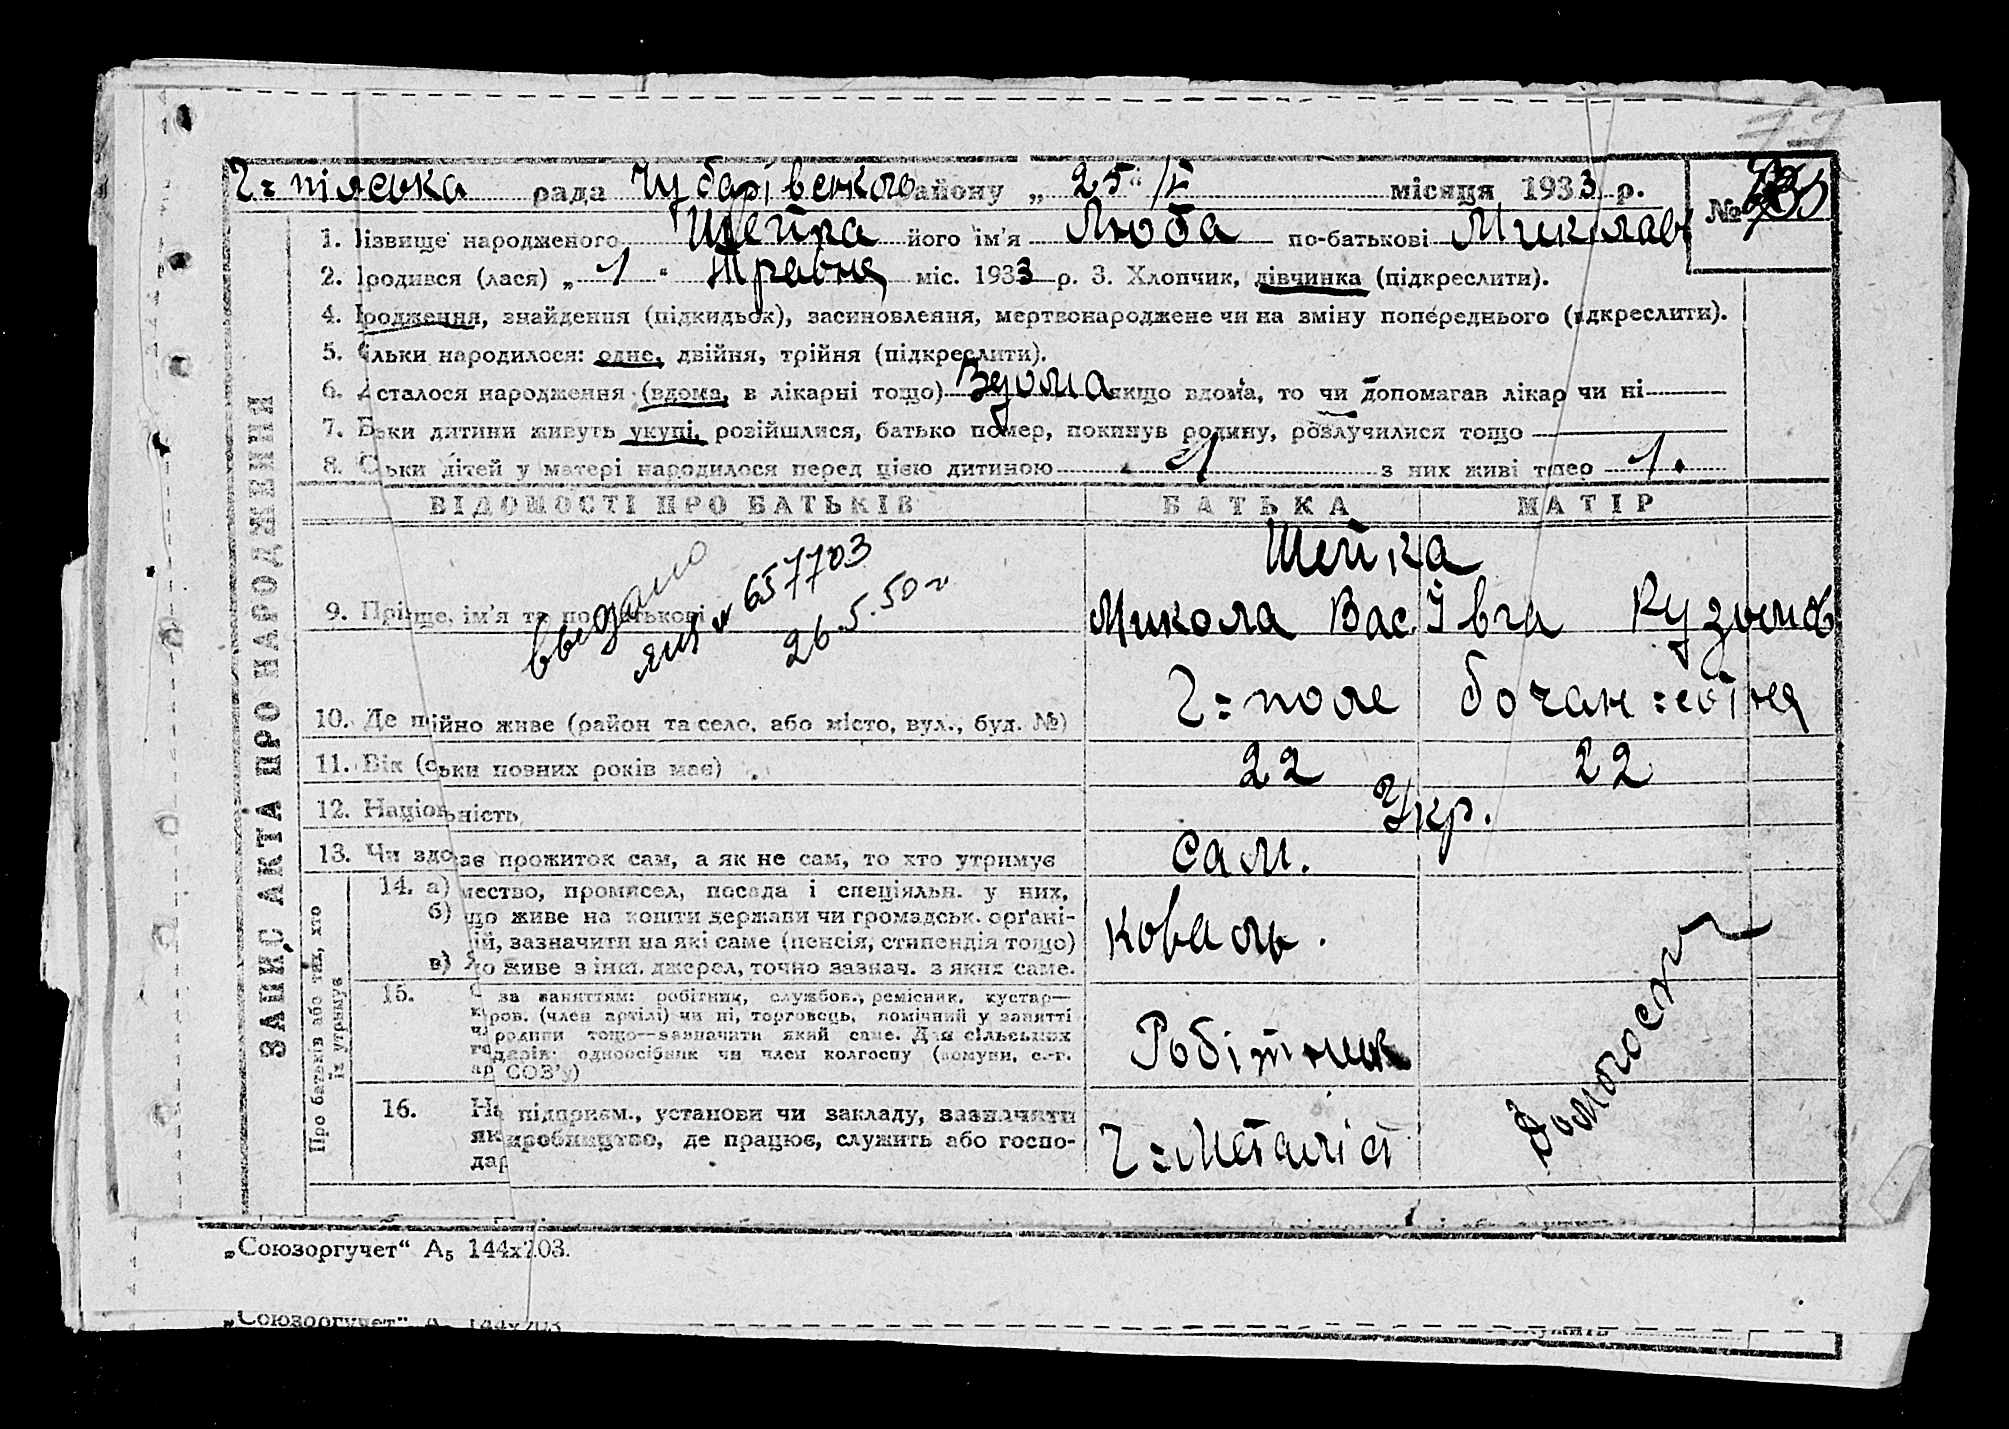 Г=пільська рада Чубарівського району „25“ /V місяця 1933 р. №
1. Прізвище народженого Шейка його ім'я Люба по-батькові Микілаєв
2. Народився (лася) „1“ травня міс. 1933 р. 3. Хлопчик, дівчинка (підкреслити).
4. родження, знайдення (підкидьок), засиновлення, мертвонароджене чи на зміну попереднього (ідкреслити).
5. ільки народилося: одне, двійня, трійня (підкреслити).
6. сталося народження (вдома, в лікарні тощо) Вдома якщо вдома, то чи допомагав лікар чи ні
7. Бьки дитини живуть укупі, розійшлися, батько помер, покинув родину, розлучилися тощо
8. Ськи дітей у матері народилося перед цією дитиною 1 з них живі тепер 1.
ВІДОМОСТІ ПРО БАТЬКІВ БАТЬКА МАТІР
ЗАПИС АКТА ПРО НАРОДЖЕННЯ
Шейка
9. Прізще, ім'я та по батькові Микола Вас. Ївга Кузьмов
выдано
№ 657703
26.5.50 г
10. Де пійно живе (район та село, або місто, вул., буд. №) Г=поле бочан=ська
11. Вік (ськи повних років має) 22 22
12. Націоньність Укр.
13. Чи здозає прожиток сам, а як не сам, то хто утримує сам.
Про батьків або тих, хто їх утримує
14. а) мество, промисел, посада і спеціяльн. у них,
б) що живе на кошти держави чи громадськ. органі-
ій, зазначити на які саме (пенсія, стипендія тощо) коваль.
в) Яо живе з інш. джерел, точно зазнач. з яких саме.
15. за заняттям: робітник, службов., ремісник, кустар—
ров. (член артілі) чи ні, торговець, помічний у занятті
родини тощо—зазначити який саме. Для сільських
дарів: одноосібник чи член колгоспу (комуни, с.-г.
ар СОЗ'у)
Робітник
Домогосп
16. На підприєм., установи чи закладу, зазначити
як виробництво, де працює, служить або госпо-
дар
Г=Металіст
„Союзоргучет“ А5 144х203.
„Союзоргучет“ А 144х203